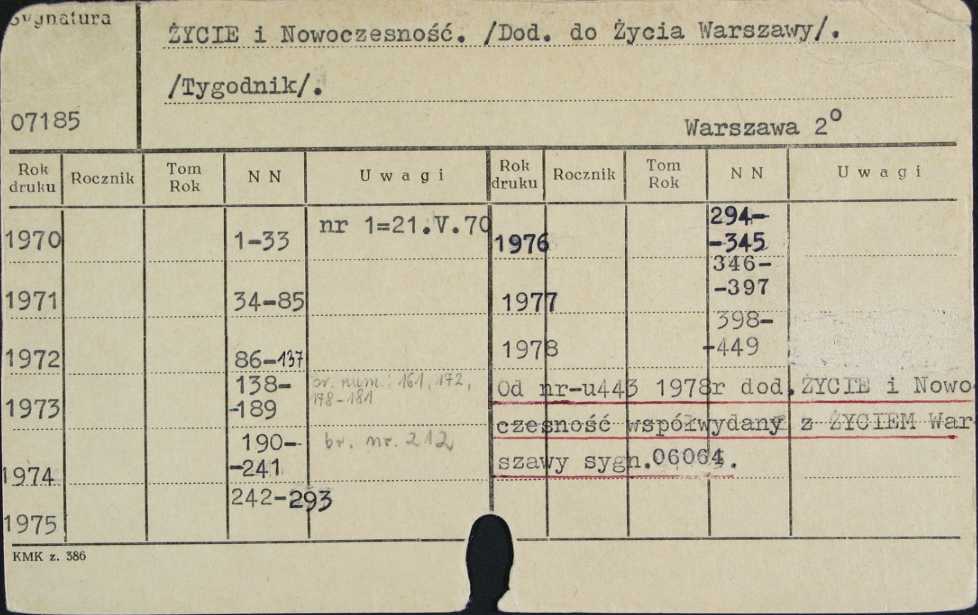 Sygnatura
ŻYCIE i Nowoczesność. /Dod. do Życia Warszawy/.
/Tygodnik/.
07185
Warszawa 2º
Rok druku Rocznik Tom Rok N N Uwagi Rok druku Rocznik Tom Rok N N Uwagi
1970 1-33 nr 1=21.V.70
1971 34-85
1972 86-137
1973 138-
-189 161, 172,
178-181
1974 190-
-241 br. nr. 212
1975 242-293
1976 294-
-345
1977 346-
-397
1978 398-
-449
Od nr-u443 1978r dod. ŻYCIE i Nowo
czesność współwydany z ŻYCIEM War-
szawy sygn.06064.
KMK z. 386